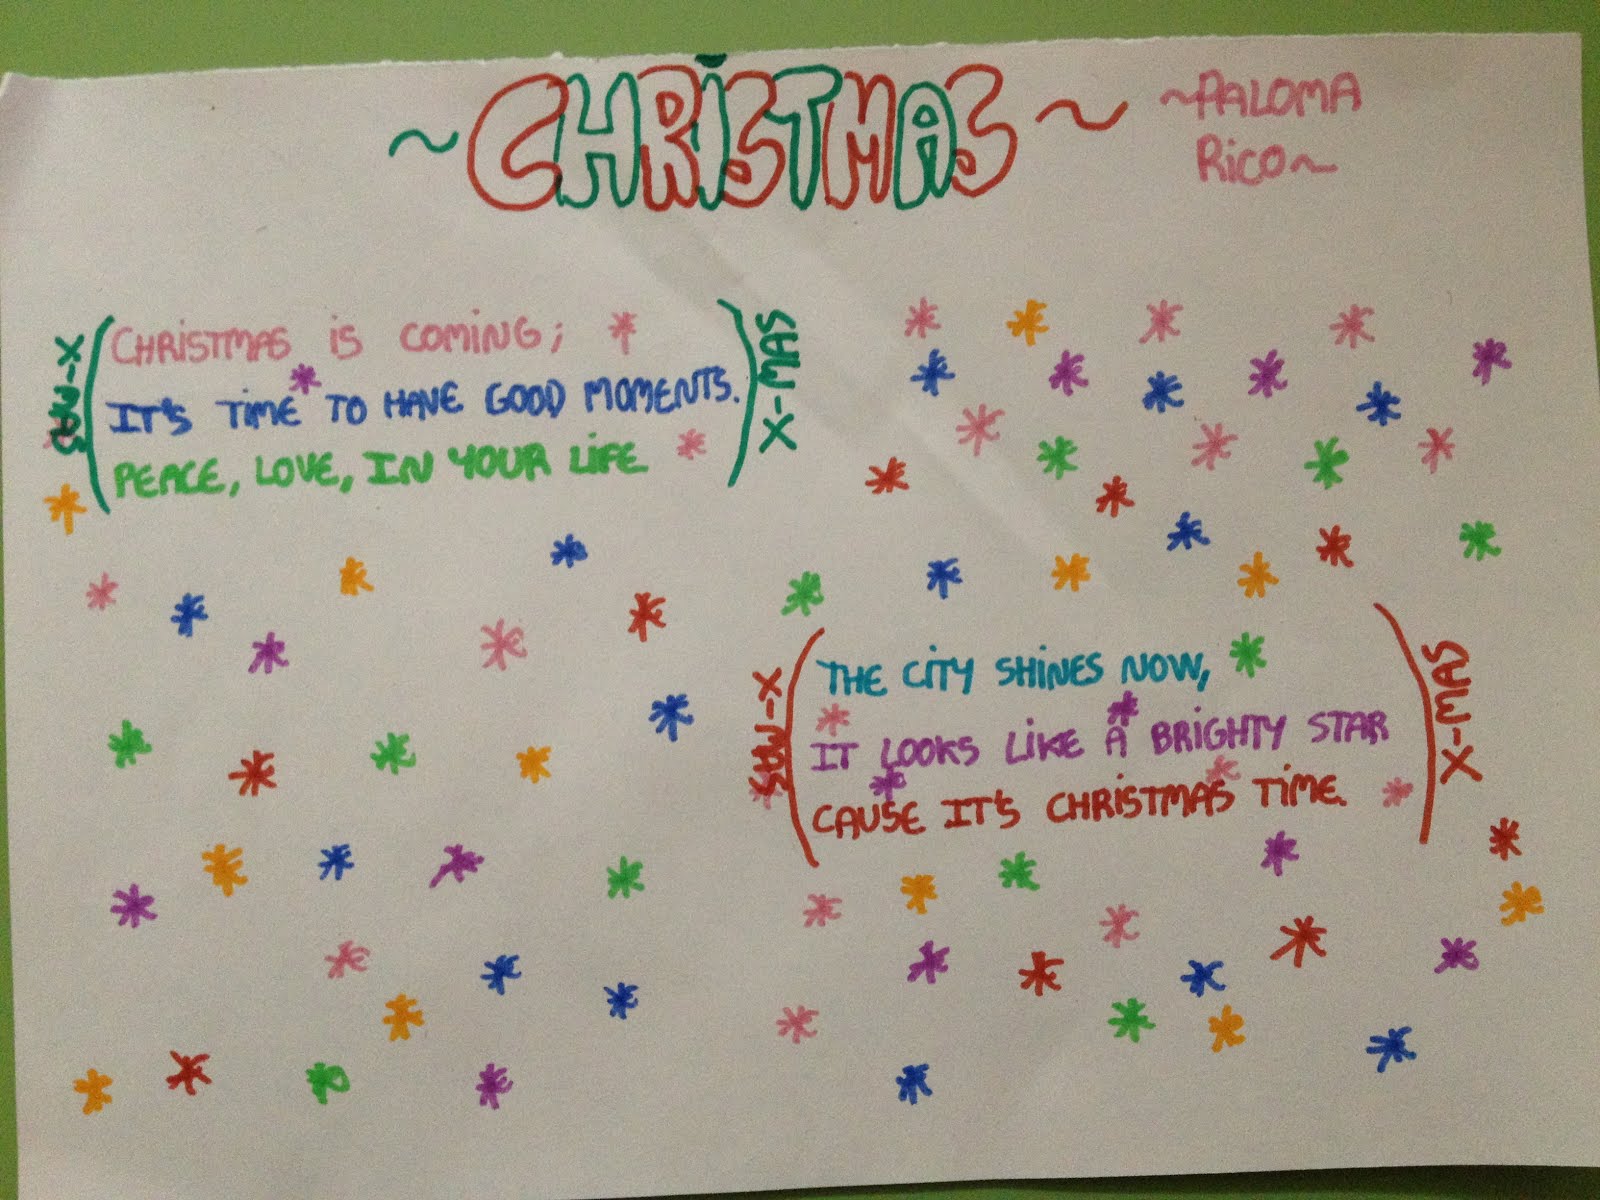 ~CHRISTMAS~
~PALOMA
RICO~
X-MAS
CHRISTMAS IS COMING;
IT'S TIME TO HAVE GOOD MOMENTS.
PEACE, LOVE, IN YOUR LIFE
X-MAS
X-MAS
THE CITY SHINES NOW,
IT LOOKS LIKE A BRIGHTY STAR
CAUSE IT'S CHRISTMAS TIME.
X-MAS